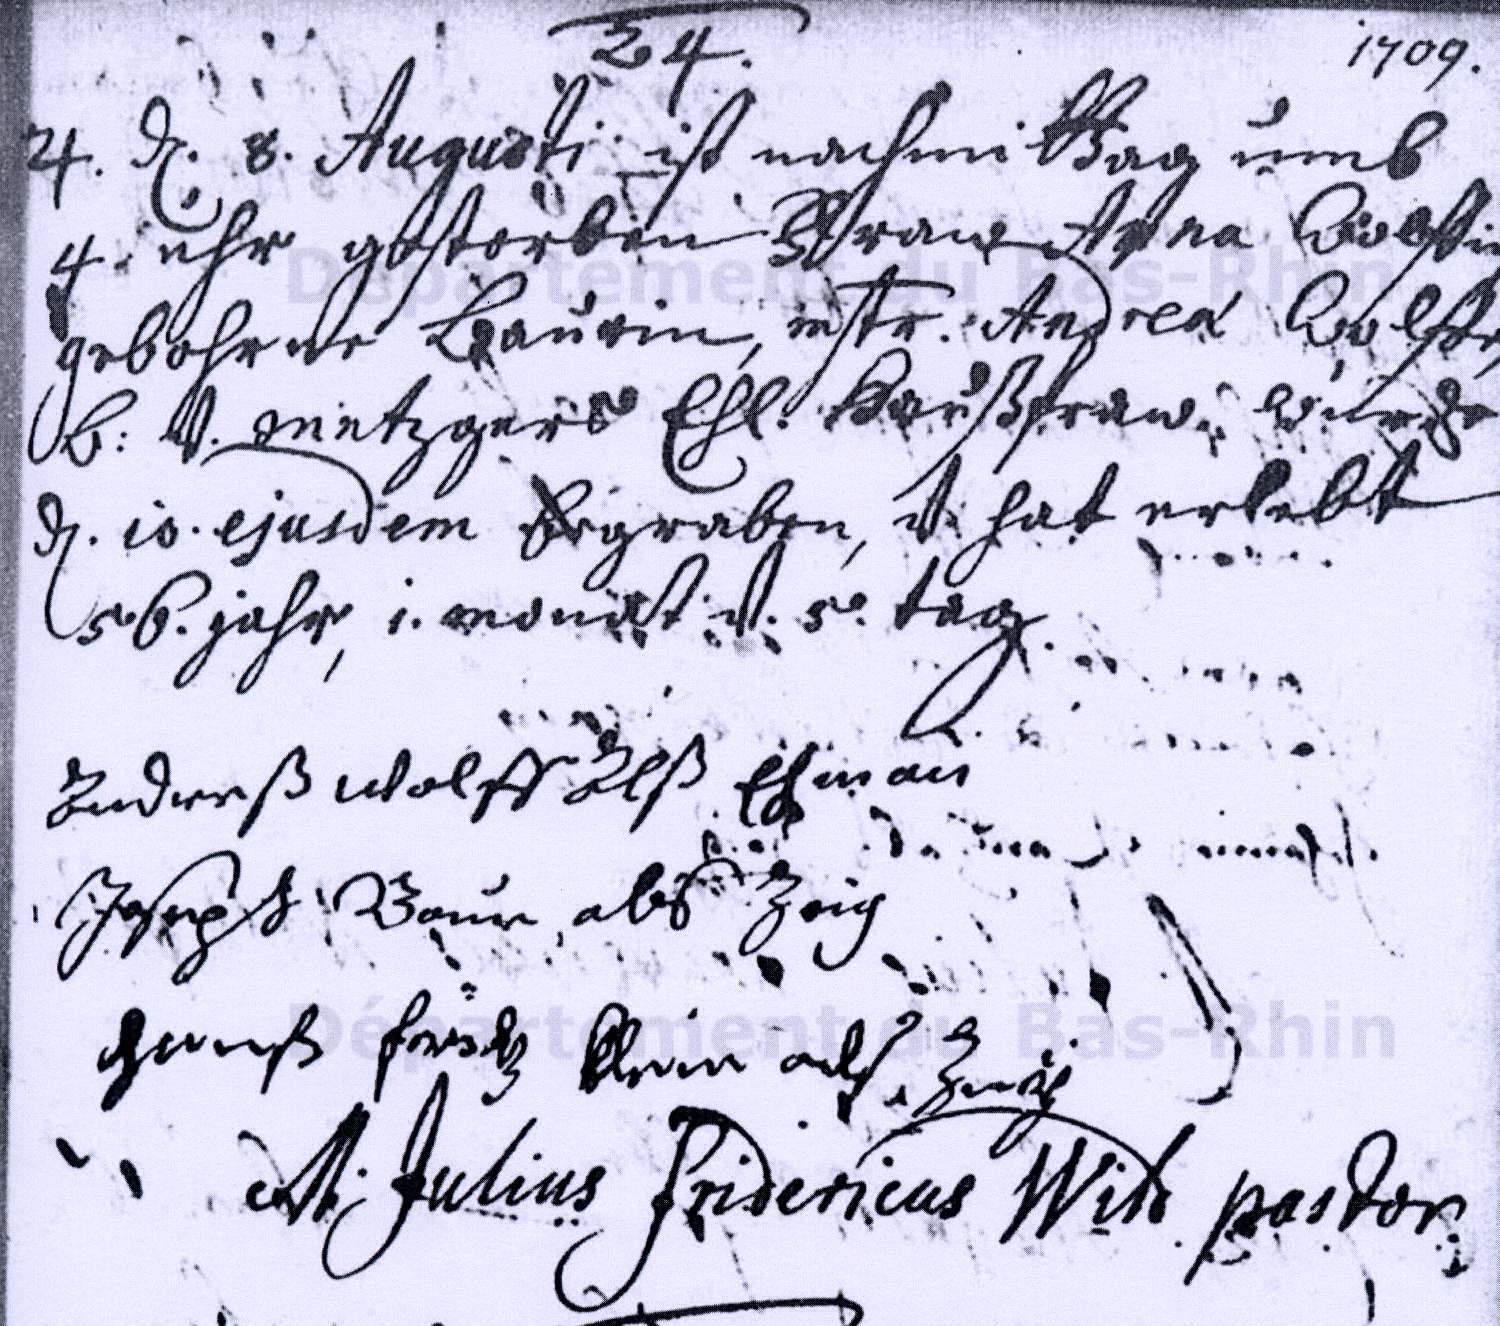 24.
1709.
4. d. 8. Augusti ist nachmittag umb
4. uhr gestorben Fraw Anna Wolffin
gebohrne Baurin, mstr. Andreä Wolffen,
b. v. Metzgers Ehl. Haußfraw, wurde
d. 10. ejusdem begraben, v. hat erlebt
56. jahr, 1. monat v. 5. tag.
Anderß Wolff Alß Ehman
Joseph Baur alß Zeig
Hanß Fridz Klein alß Zeig
M. Julius Fridericus Wild pastor
Département du Bas-Rhin
Département du Bas-Rhin